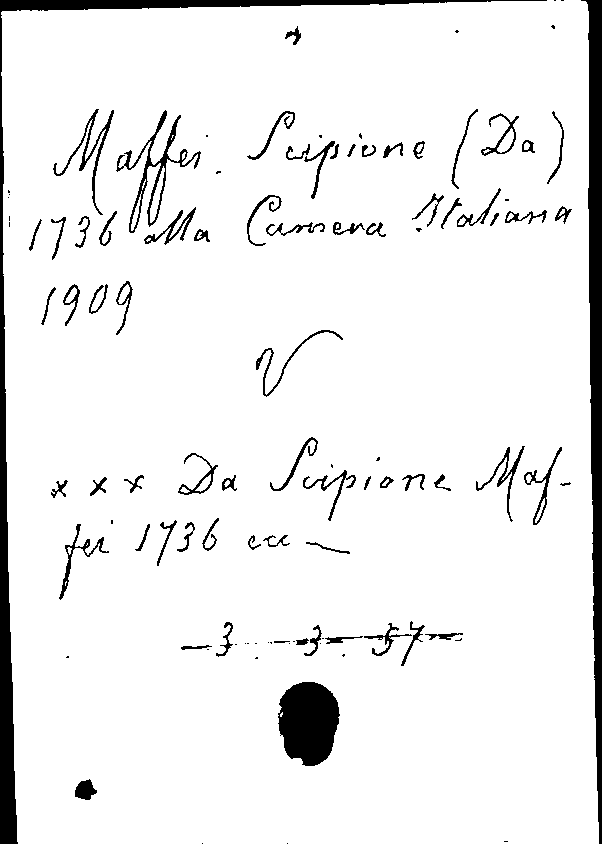 Maffei. Scipione (Da)
1736 alla Camera Italiana
1909
V
x x x Da Scipione Maf-
fei 1736 ecc
3. 3. 57